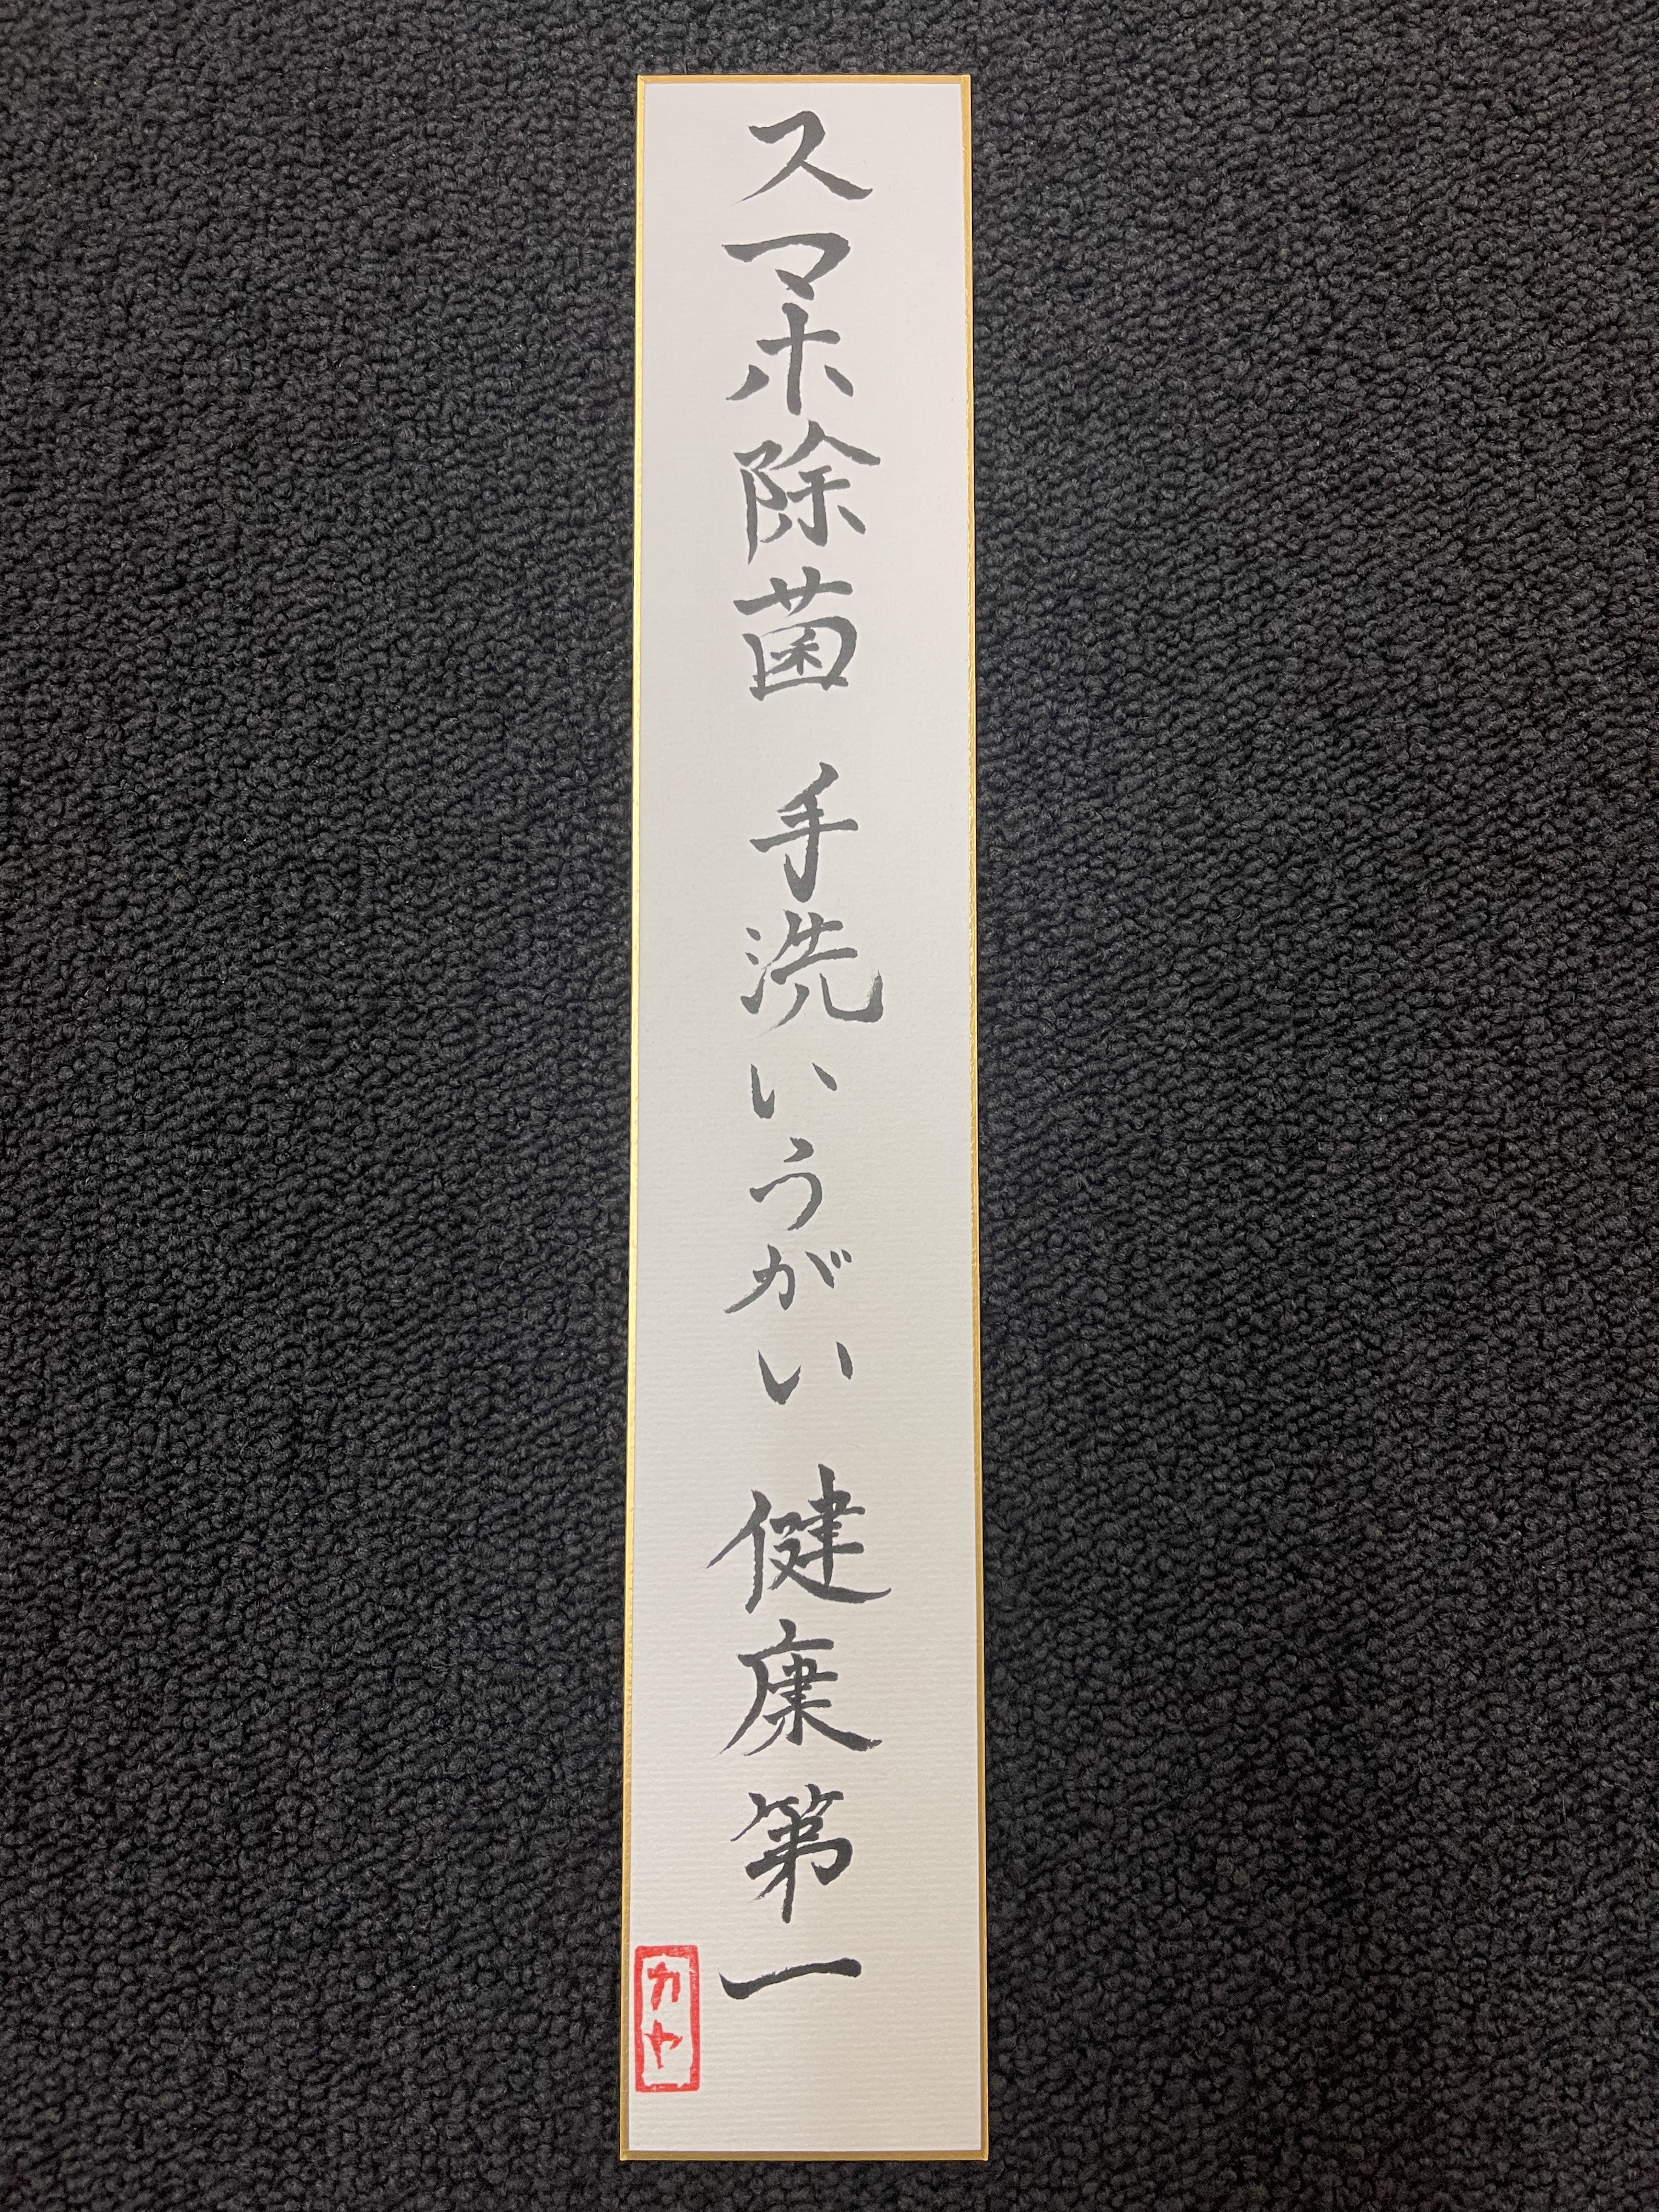 スマホ除菌 手洗いうがい 健康第一
カヤ